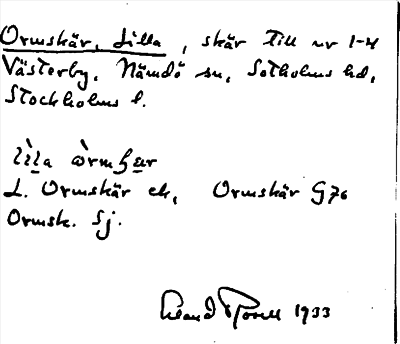 Ormskär, Lilla, skär till nr 1-4
Västerby, Nämdö sn, Sotholms hd,
Stockholms l.
lìla òrmʃær
L. Ormskär ek, Ormskär G76
Ormsk. Sj.
Erland Rosell 1933